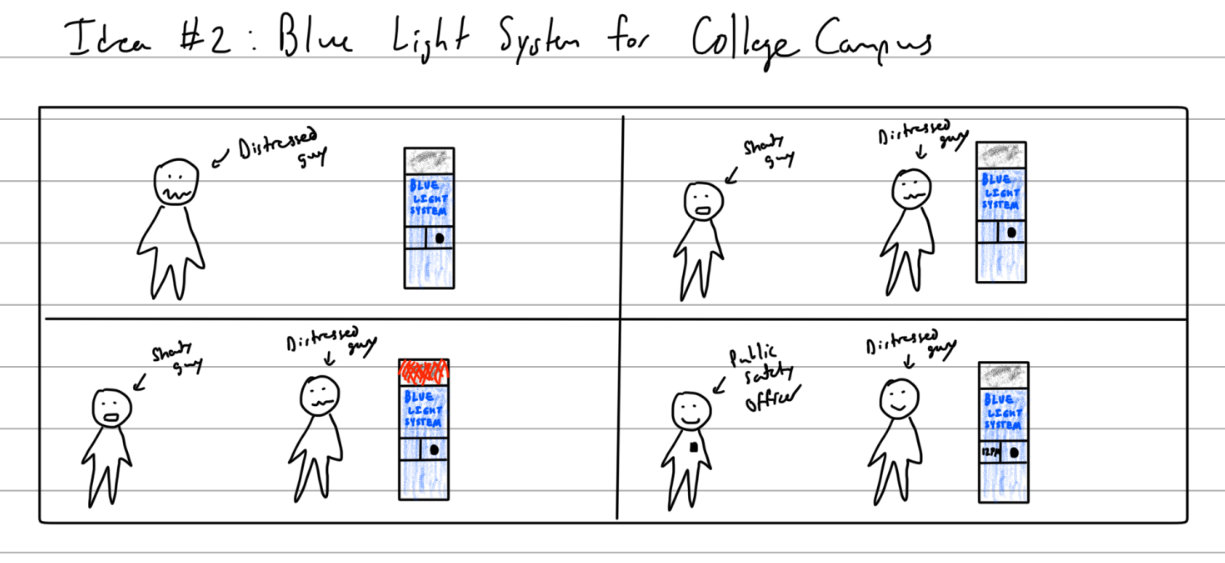 Idea #2: Blue Light System for College Campus
Distressed
guy
BLUE
LIGHT
SYSTEM
Shady
guy
Distressed
guy
BLUE
LIGHT
SYSTEM
Shady
guy
Distressed
guy
BLUE
LIGHT
SYSTEM
Public
safety
officer
Distressed
guy
BLUE
LIGHT
SYSTEM
12PM